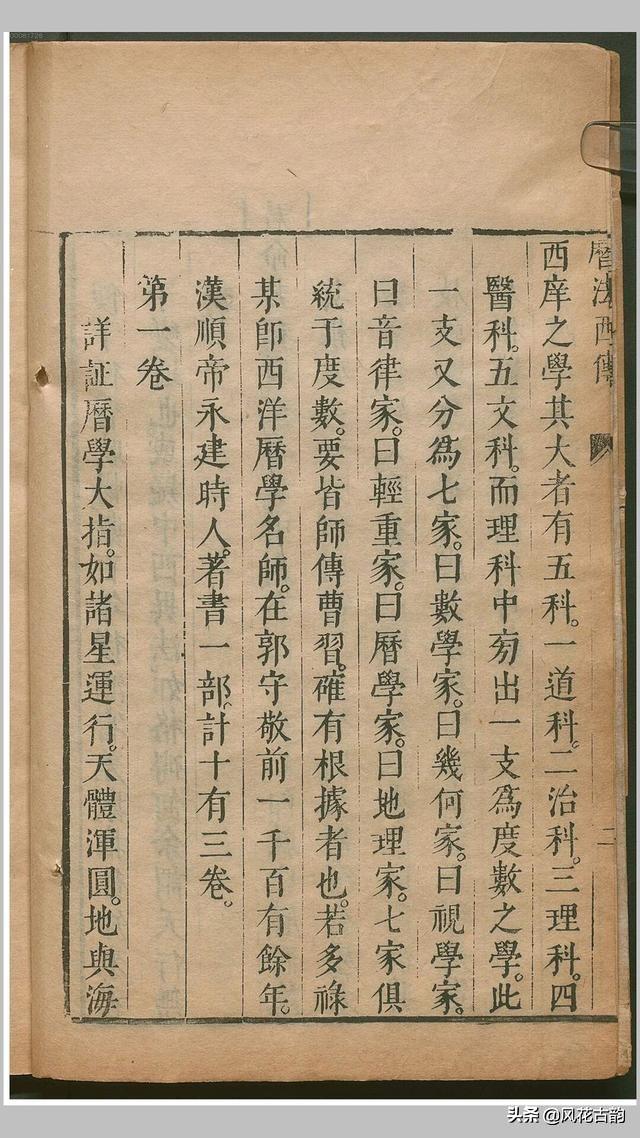 00061726
曆法西傳
二
西庠之學其大者有五科。一道科。二治科。三理科。四
醫科。五文科。而理科中旁出一支爲度數之學。此
一支又分爲七家。曰數學家。曰幾何家。曰視學家。
曰音律家。曰輕重家。曰曆學家。曰地理家。七家俱
統于度數。要皆師傳曹習。確有根據者也。若多祿
某卽西洋曆學名師。在郭守敬前一千百有餘年。
漢順帝永建時人。著書一部。計十有三卷。
第一卷
詳証曆學大指。如諸星運行。天體渾圓。地與海
头条 @风花古韵